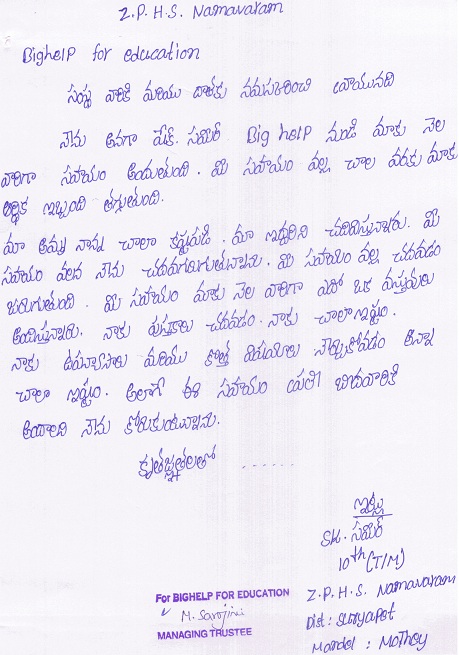 Z.P.H.S. Namavaram
BighelP for education
సంస్థ వారికి మరియు దాతకు నమస్కరించి వ్రాయునది
నేను అనగా షేక్. సమీర్ Big help నుండి మాకు నెల
వారిగా సహాయం అందుతుంది. మి సహాయం వల్ల చాల వరకు మాకు
ఆర్థిక ఇబ్బంది తగ్గుతుంది.
మా అమ్మ నాన్న చాలా కష్టపడి. మా ఇద్దరిని చదివిస్తున్నారు. మీ
సహాయం వలన నేను చదవగలుగుతున్నాను. మి సహాయం వల్ల చదవడం
జరుగుతుంది. మి సహాయం మాకు నెల వారిగా ఏదో ఒక వస్తువులు
అందిస్తున్నారు. నాకు పుస్తకాలు చదవడం. నాకు చాలా ఇష్టం.
నాకు ఉపన్యాసాలు మరియు కొత్త విషయాలు నేర్చుకోవడం అన్నా
చాలా ఇష్టం. అలాగే ఈ సహాయం ప్రతి బిదవారికి
అందాలని నేను కోరుకుంటున్నాను.
కృతజ్ఞతలతో ......
ఇట్లు
SK. సమీర్
10th (T/M)
Z.P.H.S. Namavaram
Dist : suryapet
Mandal : Mothey
For BIGHELP FOR EDUCATION
M. Sarojini
MANAGING TRUSTEE